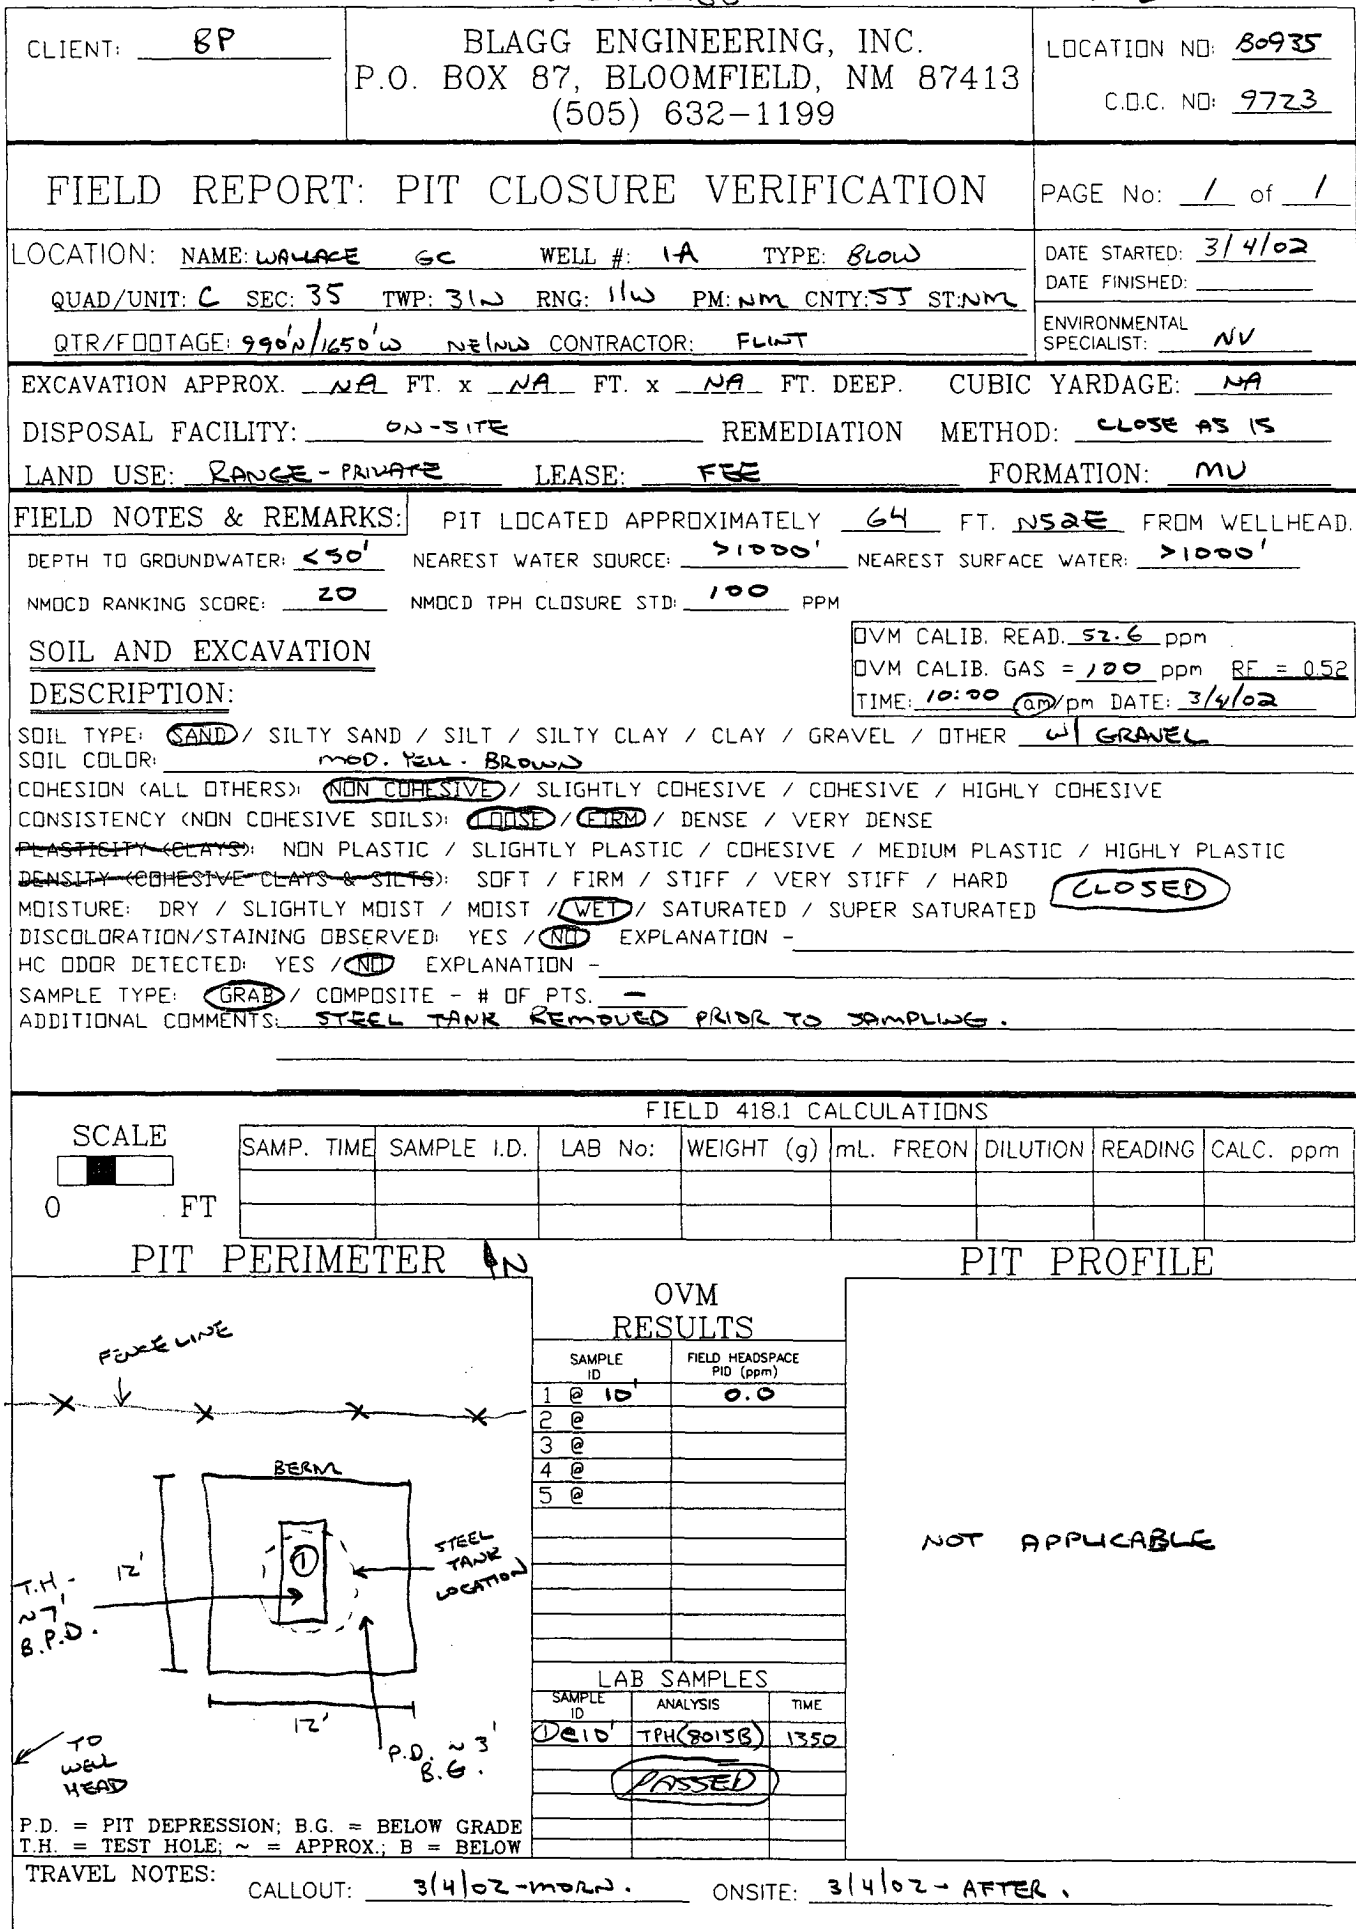 CLIENT: BP
BLAGG ENGINEERING, INC.
P.O. BOX 87, BLOOMFIELD, NM 87413
(505) 632-1199
LOCATION NO: B0935
C.O.C. NO: 9723
FIELD REPORT: PIT CLOSURE VERIFICATION
PAGE No: 1 of 1
LOCATION: NAME: WALLACE GC WELL #: 1A TYPE: BLOW
QUAD/UNIT: C SEC: 35 TWP: 31N RNG: 11W PM: NM CNTY: SJ ST: NM
QTR/FOOTAGE: 990'N/1650'W NE/NW CONTRACTOR: FLINT
DATE STARTED: 3/4/02
DATE FINISHED:
ENVIRONMENTAL
SPECIALIST: NV
EXCAVATION APPROX. NA FT. x NA FT. x NA FT. DEEP. CUBIC YARDAGE: NA
DISPOSAL FACILITY: ON-SITE REMEDIATION METHOD: CLOSE AS IS
LAND USE: RANGE - PRIVATE LEASE: FEE FORMATION: MV
FIELD NOTES & REMARKS: PIT LOCATED APPROXIMATELY 64 FT. N52E FROM WELLHEAD.
DEPTH TO GROUNDWATER: <50' NEAREST WATER SOURCE: >1000' NEAREST SURFACE WATER: >1000'
NMOCD RANKING SCORE: 20 NMOCD TPH CLOSURE STD: 100 PPM
SOIL AND EXCAVATION
DESCRIPTION:
OVM CALIB. READ. 52.6 ppm
OVM CALIB. GAS = 100 ppm RF = 0.52
TIME: 10:00 am/pm DATE: 3/4/02
SOIL TYPE: SAND / SILTY SAND / SILT / SILTY CLAY / CLAY / GRAVEL / OTHER W/ GRAVEL
SOIL COLOR: MOD. YELL. BROWN
COHESION (ALL OTHERS): NON COHESIVE / SLIGHTLY COHESIVE / COHESIVE / HIGHLY COHESIVE
CONSISTENCY (NON COHESIVE SOILS): LOOSE / FIRM / DENSE / VERY DENSE
PLASTICITY (CLAYS): NON PLASTIC / SLIGHTLY PLASTIC / COHESIVE / MEDIUM PLASTIC / HIGHLY PLASTIC
DENSITY (COHESIVE CLAYS & SILTS): SOFT / FIRM / STIFF / VERY STIFF / HARD
CLOSED
MOISTURE: DRY / SLIGHTLY MOIST / MOIST / WET / SATURATED / SUPER SATURATED
DISCOLORATION/STAINING OBSERVED: YES / NO EXPLANATION -
HC ODOR DETECTED: YES / NO EXPLANATION -
SAMPLE TYPE: GRAB / COMPOSITE - # OF PTS. -
ADDITIONAL COMMENTS: STEEL TANK REMOVED PRIOR TO SAMPLING.
FIELD 418.1 CALCULATIONS
SCALE
0 FT
SAMP. TIME SAMPLE I.D. LAB No: WEIGHT (g) mL. FREON DILUTION READING CALC. ppm
PIT PERIMETER N
FENCE LINE
BERM
12'
STEEL
TANK
LOCATION
1
T.H -
~7'
B.P.D.
12'
P.D. ~ 3'
B.G.
TO
WELL
HEAD
P.D. = PIT DEPRESSION; B.G. = BELOW GRADE
T.H. = TEST HOLE; ~ = APPROX.; B = BELOW
OVM
RESULTS
SAMPLE ID FIELD HEADSPACE PID (ppm)
1 @ 10' 0.0
2 @
3 @
4 @
5 @
LAB SAMPLES
SAMPLE ID ANALYSIS TIME
① @ 10' TPH(8015B) 1350
PASSED
PIT PROFILE
NOT APPLICABLE
TRAVEL NOTES: CALLOUT: 3/4/02 - MORN. ONSITE: 3/4/02 - AFTER.